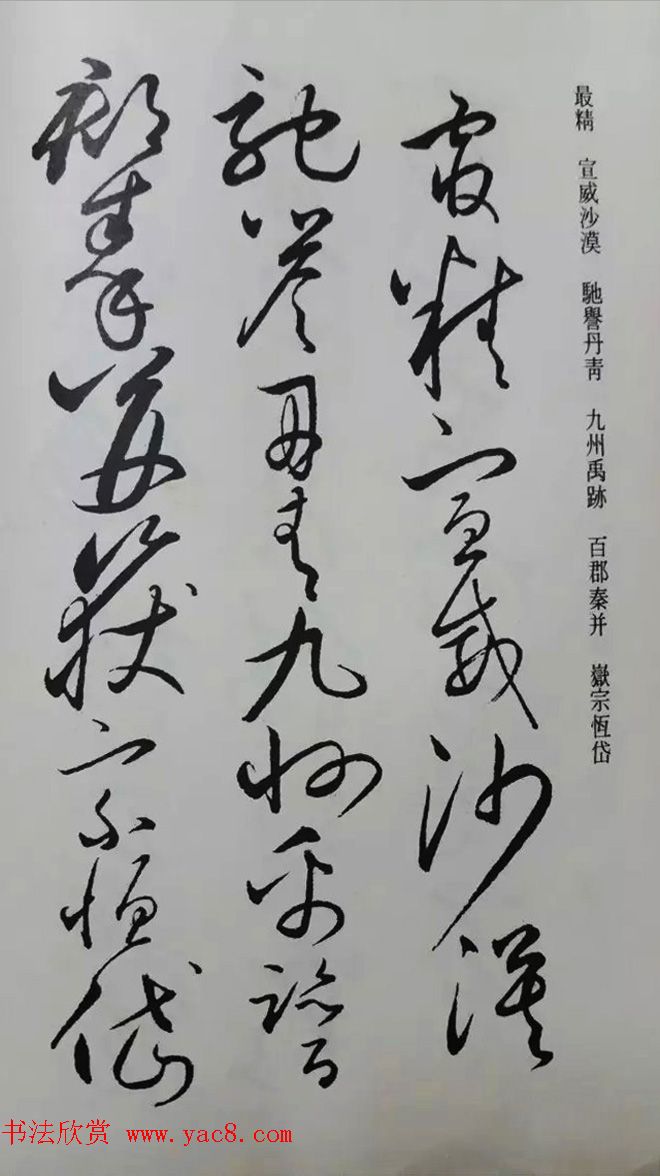 最精 宣威沙漠 馳譽丹靑 九州禹跡 百郡秦并 嶽宗恆岱
最精宣威沙漠
馳譽丹青九州禹跡百
郡秦并嶽宗恆岱
书法欣赏 www.yac8.com